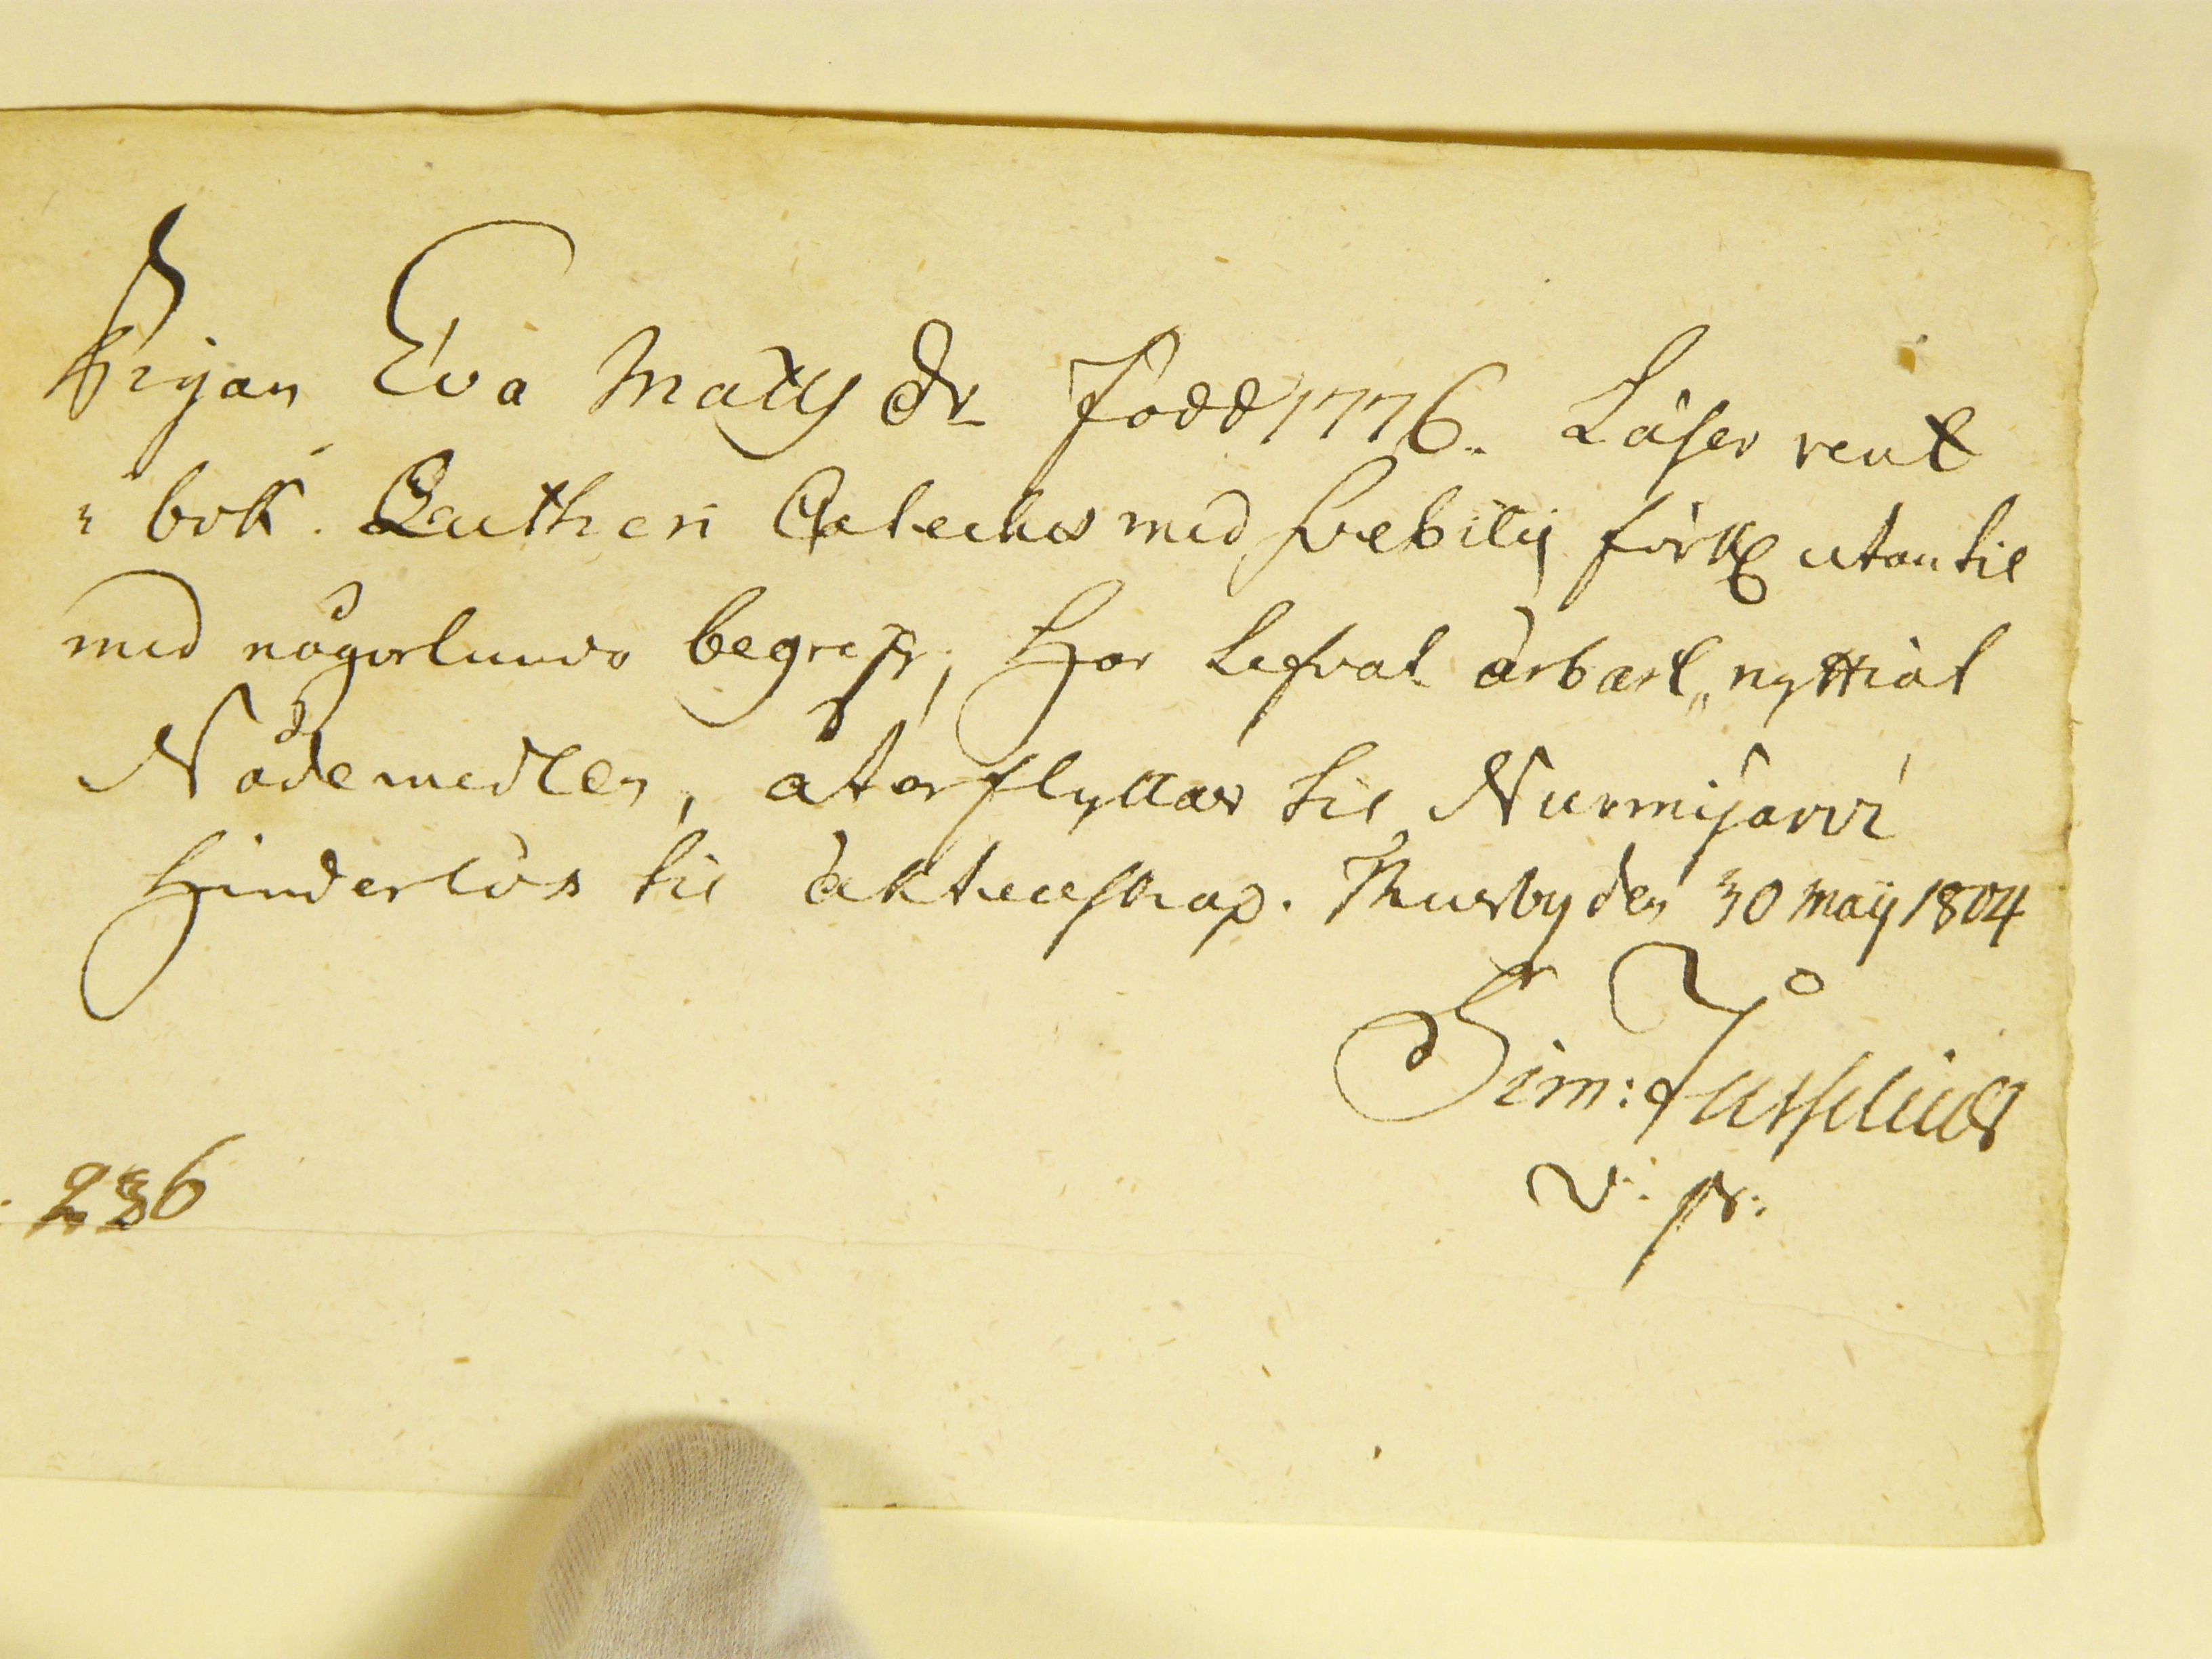 Pigan Eva Matts dr född 1776. Läser rent
i bok. Lutheri Cateches med Svebilij förkl utantil
med någorlunda begrep; Har Lefvat ärbart, nyttiat
Nådemedlen, återflyttar til Nurmijärvi
hinderlös til äktenskap. Thusby den 30 Maij 1804
Sim:
v. p.
236